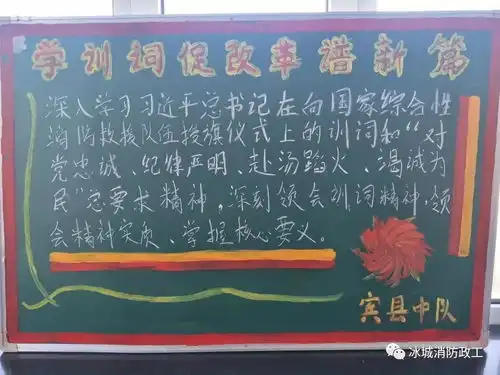 学训词促改革谱新篇
深入学习习近平总书记在向国家综合性
消防救援队伍授旗仪式上的训词和“对
党忠诚、纪律严明、赴汤蹈火、竭诚为
民”总要求精神，深刻领会训词精神，领
会精神实质、掌握核心要义。
宾县中队
冰城消防政工